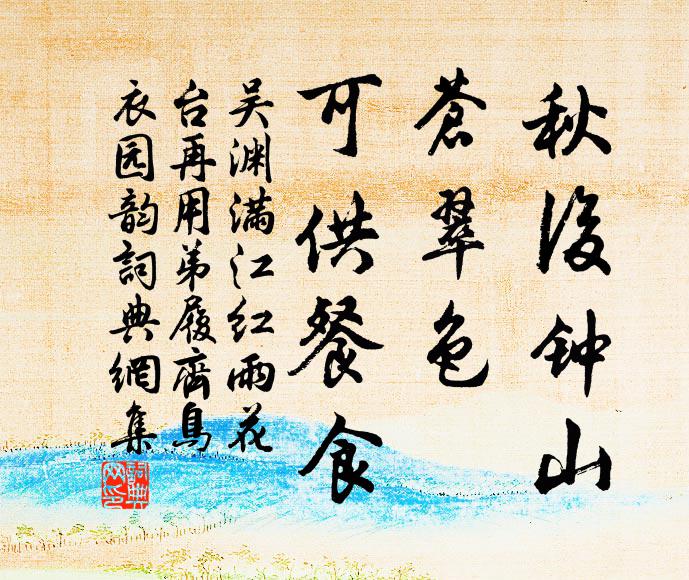 秋後钟山
蒼翠色
可供餐食
吴渊满江红雨花
台再用弟履齋烏
衣园韵詞典網集